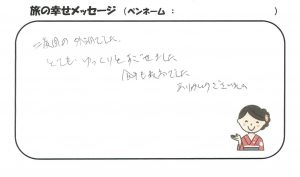 旅の幸せメッセージ（ペンネーム： ）
二度目の外湖でした。
とてもゆっくりとすごせました
食事も最高でした
ありがとうございました